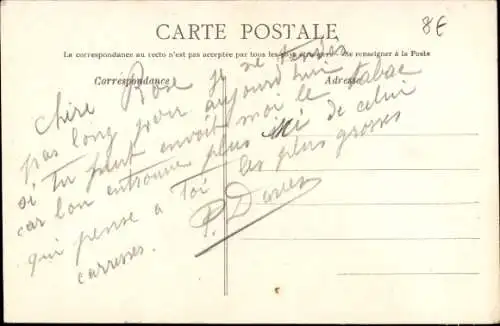 CARTE POSTALE
8€
La correspondance au recto n'est pas acceptée par tous les pays étrangers. Se renseigner à la Poste
Correspondance
Adresse
Chère Rose je ne
pas long pour aujourd'hui
si tu peut envoit moi le tabac
car lon entrouve plus ici de celui
qui pense a Toi les plus grosses
carresses.
P.